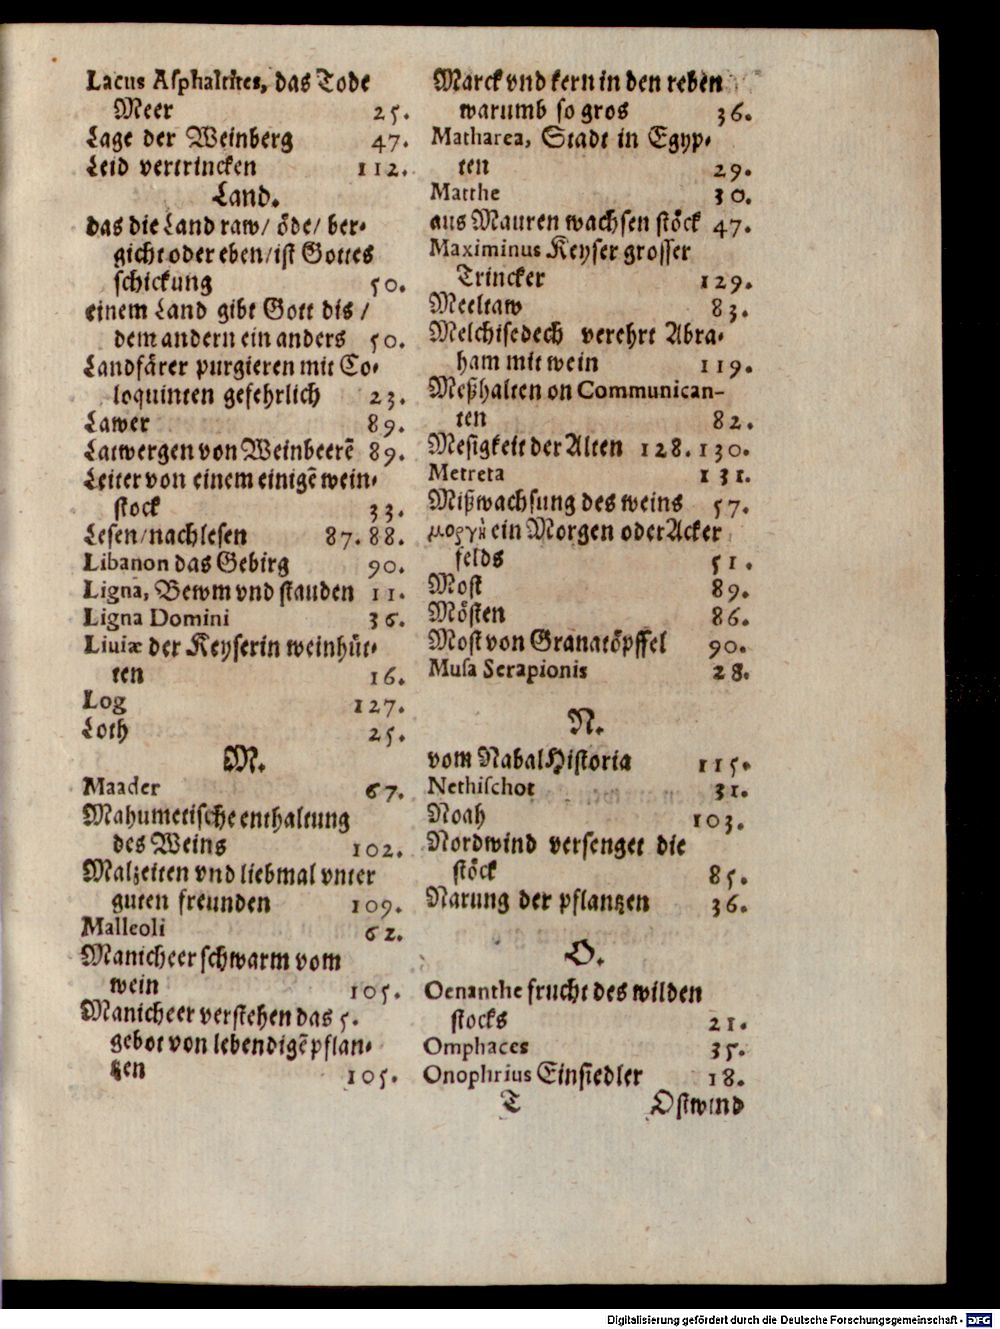 Lacus Asphaltites, das Tode
Meer 25.
Lage der Weinberg 47.
Leid vertrincken 112.
Land.
das die Land raw/ öde/ ber-
gicht oder eben/ist Gottes
schickung 50.
einem Land gibt Gott dis /
dem andern ein anders 50.
Landfärer purgieren mit Co-
loquinten gefehrlich 23.
Lawer 89.
Latwergen von Weinbeerē 89.
Leiter von einem einigē wein-
stock 33.
Lesen/nachlesen 87. 88.
Libanon das Gebirg 90.
Ligna, Bewm vnd stauden 11.
Ligna Domini 36.
Liuiæ der Keyserin weinhüt-
ten 16.
Log 127.
Loth 25.
M.
Maader 67.
Mahumetische enthaltung
des Weins 102.
Malzeiten vnd liebmal vnter
guten freunden 109.
Malleoli 62.
Manicheer schwarm vom
wein 105.
Manicheer verstehen das 5.
gebot von lebendigē pflan-
tzen 105.
Marck vnd kern in den reben
warumb so gros 36.
Matharea, Stadt in Egyp-
ten 29.
Matthe 30.
aus Mauren wachsen stöck 47.
Maximinus Keyser grosser
Trincker 129.
Meeltaw 83.
Melchisedech verehrt Abra-
ham mit wein 119.
Meßhalten on Communican-
ten 82.
Mesigkeit der Alten 128. 130.
Metreta 131.
Mißwachsung des weins 57.
ein Morgen oder Acker
felds 51.
Most 89.
Mösten 86.
Most von Granatöpffel 90.
Musa Serapionis 28.
N.
vom Nabal Historia 115.
Nethischot 31.
Noah 103.
Nordwind versenget die
stöck 85.
Narung der pflantzen 36.
O.
Oenanthe frucht des wilden
stocks 21.
Omphaces 35.
Onophrius Einsiedler 18.
T Ostwind
Digitalisierung gefördert durch die Deutsche Forschungsgemeinschaft - DFG